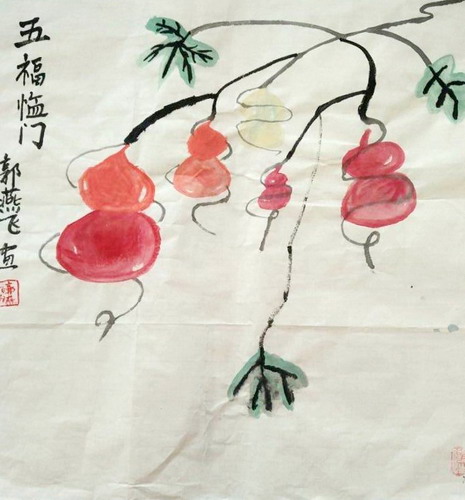 五福临门
郭燕飞画